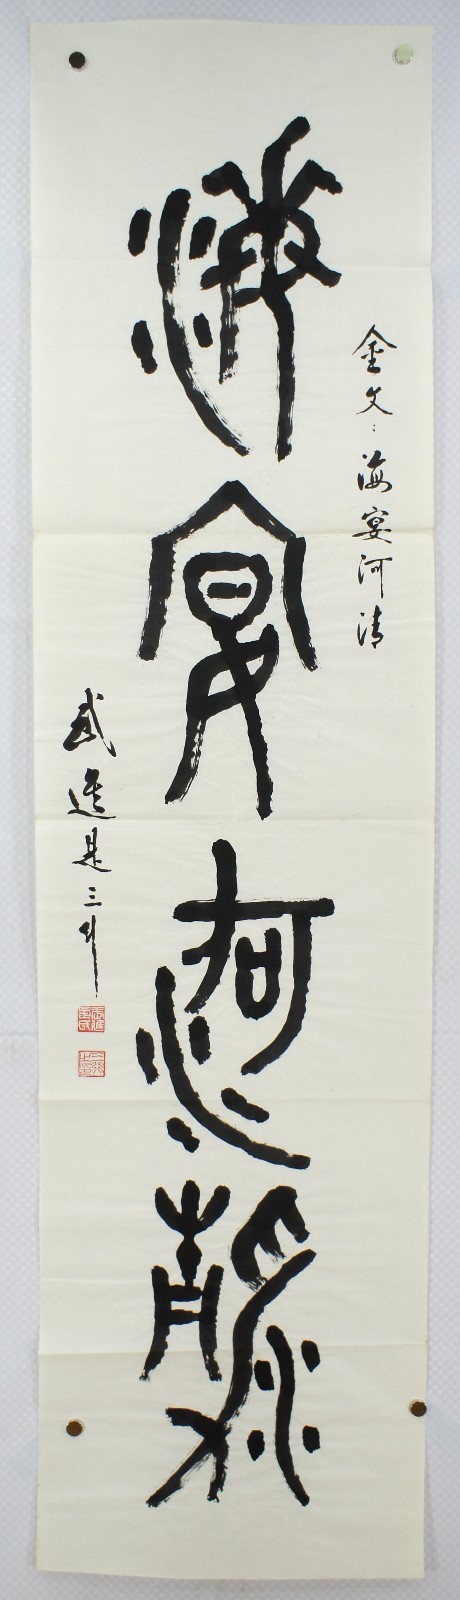 海宴河清
金文：海宴河清
武進是三川